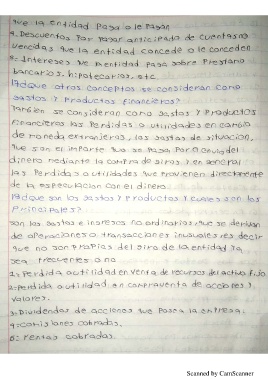 que la entidad Paga o le Pagan
7. Descuentos Por Pagar anticipado de cuentas no
vencidas que la entidad concede o le conceden
8. Intereses que mi entidad Paga sobre Prestamo
bancarios, hipotecarios, etc
19 d que otros conceptos se consideran como
Gastos y Productos financieros?
También se consideran como Gastos y Productos
financieros las Perdidas o utilidades en cambio
de moneda extranjeros, los Gastos de situación,
que son el importe que se Paga Por el envio del
dinero mediante la compra de giros y en general
las Perdidas o utilidades que Provienen directamente
de la especulacion con el dinero.
19 d que son los Gastos y Productos y cuales son los
Principales?
son los Gastos e ingresos no ordinarios que se derivan
de operaciones o transacciones inusuales es decir
que no son Propias del giro de la entidad ya
sea frecuentes o no
1: Perdida o utilidad en venta de recursos del activo fijo
2: Perdida o utilidad en compraventa de acciones y
valores.
3: Dividendos de acciones que Posea la empresa.
4: comisiones cobradas.
6: rentas cobradas.
Scanned by CamScanner